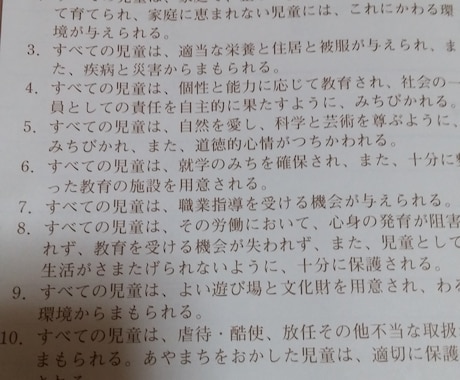 て育てられ、家庭に恵まれない児童には、これにかわる環
境が与えられる。
3. すべての児童は、適当な栄養と住居と被服が与えられ、ま
た、疾病と災害からまもられる。
4. すべての児童は、個性と能力に応じて教育され、社会の一
員としての責任を自主的に果たすように、みちびかれる。
5. すべての児童は、自然を愛し、科学と芸術を尊ぶように、
みちびかれ、また、道徳的心情がつちかわれる。
6. すべての児童は、就学のみちを確保され、また、十分に整
った教育の施設を用意される。
7. すべての児童は、職業指導を受ける機会が与えられる。
8. すべての児童は、その労働において、心身の発育が阻害
れず、教育を受ける機会が失われず、また、児童として
生活がさまたげられないように、十分に保護される。
9. すべての児童は、よい遊び場と文化財を用意され、わる
環境からまもられる。
10. すべての児童は、虐待・酷使、放任その他不当な取扱
まもられる。あやまちをおかした児童は、適切に保護